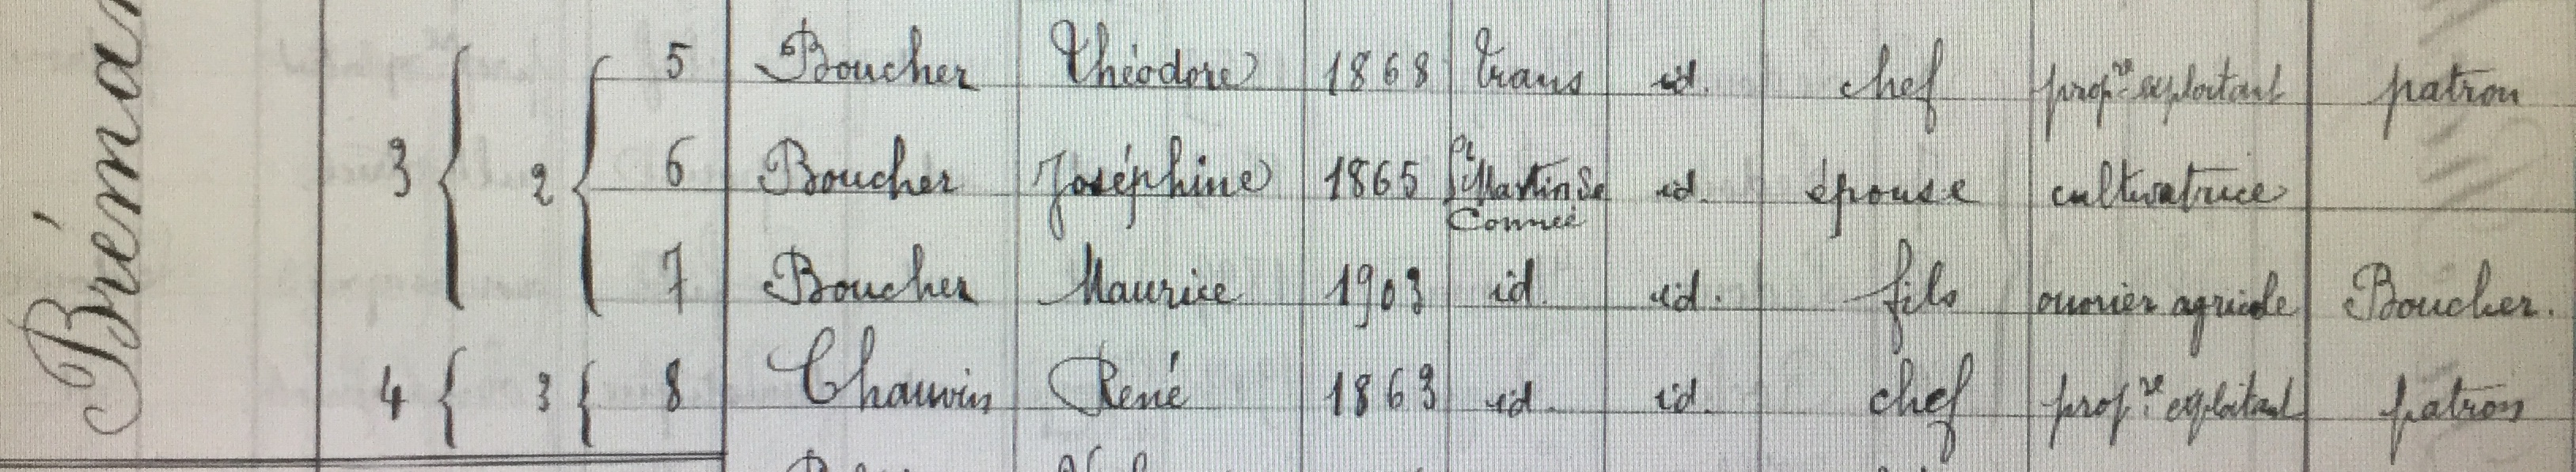 Bréma
3 2 5 Boucher Théodore 1868 Trans id. chef prop.re exploitant patron
6 Boucher Joséphine 1865 St Martin de Connée id. épouse cultivatrice
7 Boucher Maurice 1903 id. id. fils ouvrier agricole Boucher.
4 3 8 Chauvin René 1863 id. id. chef prop.re exploitant patron